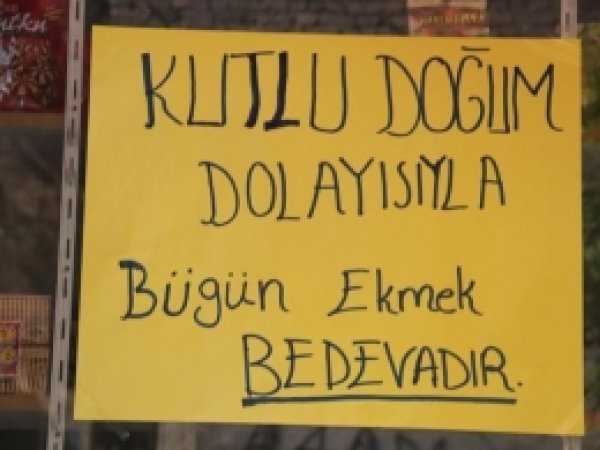 KUTLU DOĞUM
DOLAYISIYLA
Bügün Ekmek
BEDEVADIR.